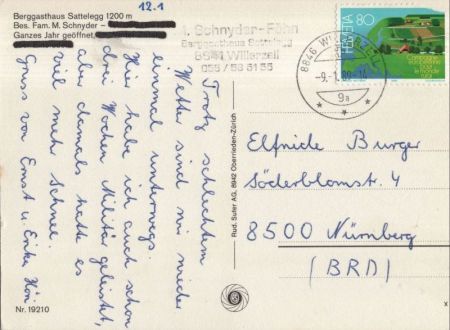 Berggasthaus Sattelegg 1200 m
Bes. Fam. M. Schnyder –
Ganzes Jahr geöffnet,
12.1
M. Schnyder-Föhn
Berggasthaus Sattelegg
8641 Willerzell
Trotz schlechtem
Wetter sind wir wieder
einmal unterwegs
Hier habe ich auch schon
drei Wochen Militär geleistet,
aber damals hatte es
viel mehr Schnee.
Gruss von Ernst u. Erika
Nr. 19210
Rud. Suter AG, 8942 Oberrieden-Zürich
8846 WILLERZELL
-9.-1.89-14
9a
HELVETIA 80
Campagne
européenne
pour
le monde
rural
Elfriede Burger
Söderblomstr. 4
8500 Nürnberg
(BRD)
x